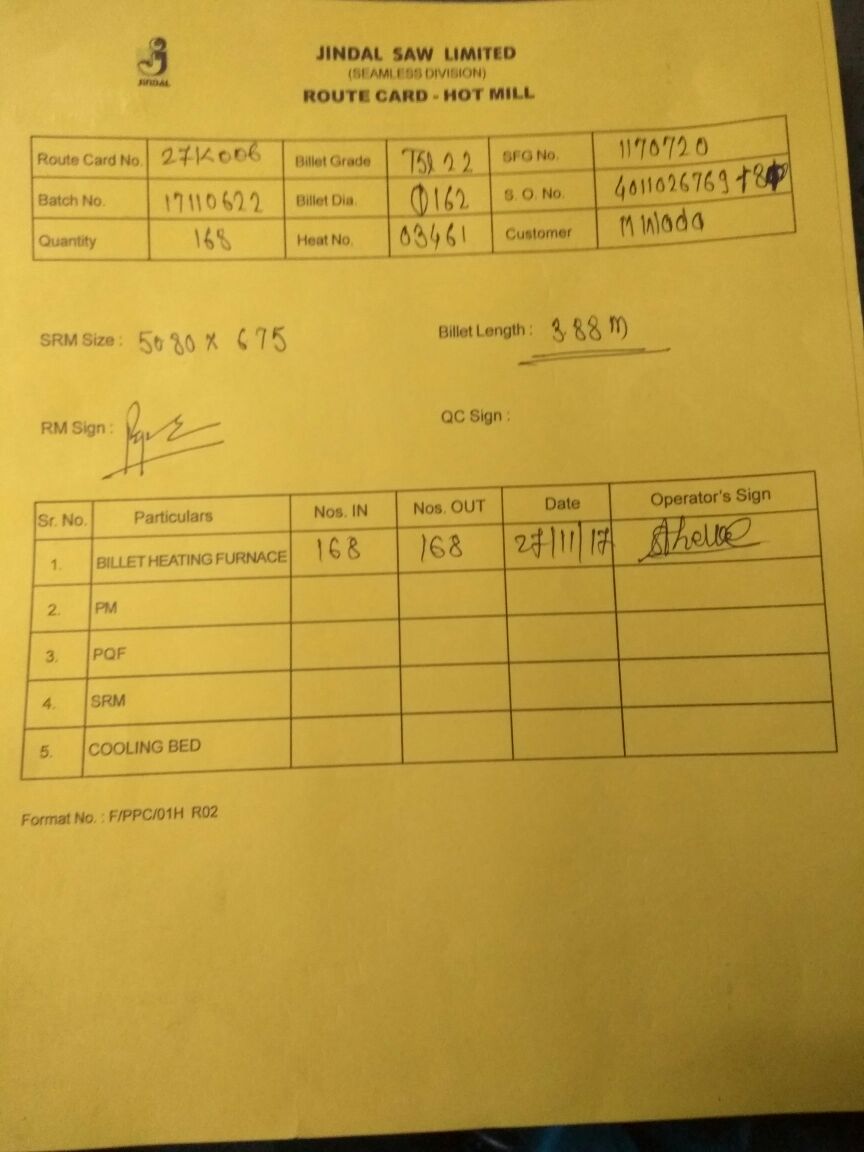 JINDAL
JINDAL SAW LIMITED
(SEAMLESS DIVISION)
ROUTE CARD - HOT MILL
Route Card No. 27K006 Billet Grade SFG No. 1170720
Batch No. 17110622 Billet Dia. Φ162 S. O. No. 4011026769
Quantity 168 Heat No. 03461 Customer
SRM Size : 5080 x 675 Billet Length : 3.88 m
RM Sign : QC Sign :
Sr. No. Particulars Nos. IN Nos. OUT Date Operator's Sign
1. BILLET HEATING FURNACE 168 168 27/11/17
2. PM
3. PQF
4. SRM
5. COOLING BED
Format No. : F/PPC/01H R02